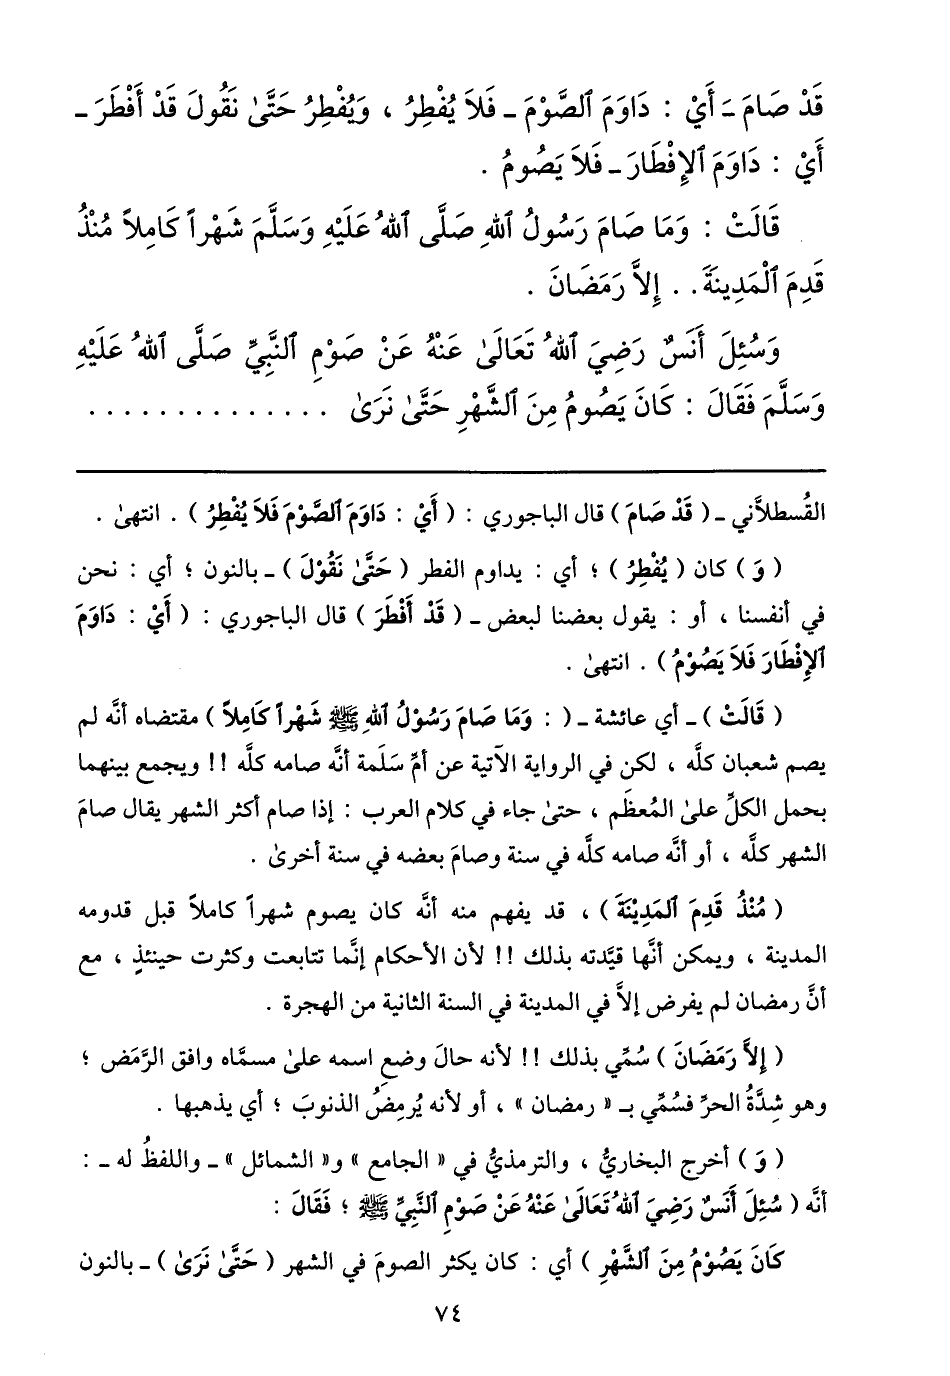 قَدْ صَامَ ـ أَيْ : دَاوَمَ ٱلصَّوْمَ ـ فَلاَ يُفْطِرُ ، وَيُفْطِرُ حَتَّىٰ نَقُولَ قَدْ أَفْطَرَ ـ
أَيْ : دَاوَمَ ٱلإِفْطَارَ ـ فَلاَ يَصُومُ .
قَالَتْ : وَمَا صَامَ رَسُولُ ٱللهِ صَلَّى ٱللهُ عَلَيْهِ وَسَلَّمَ شَهْراً كَامِلاً مُنْذُ
قَدِمَ ٱلْمَدِينَةَ . . إِلاَّ رَمَضَانَ .
وَسُئِلَ أَنَسٌ رَضِيَ ٱللهُ تَعَالَىٰ عَنْهُ عَنْ صَوْمِ ٱلنَّبِيِّ صَلَّى ٱللهُ عَلَيْهِ
وَسَلَّمَ فَقَالَ : كَانَ يَصُومُ مِنَ ٱلشَّهْرِ حَتَّىٰ نَرَىٰ . . . . . . . . . . . . . .
القُسطلاَّني ـ ( قَدْ صَامَ ) قال الباجوري : ( أَيْ : دَاوَمَ ٱلصَّوْمَ فَلاَ يُفْطِرُ ) . انتهىٰ .
( وَ ) كان ( يُفْطِرُ ) ؛ أي : يداوم الفطر ( حَتَّىٰ نَقُوْلَ ) ـ بالنون ؛ أي : نحن
في أنفسنا ، أو : يقول بعضنا لبعض ـ ( قَدْ أَفْطَرَ ) قال الباجوري : ( أَيْ : دَاوَمَ
ٱلإِفْطَارَ فَلاَ يَصُوْمُ ) . انتهىٰ .
( قَالَتْ ) ـ أي عائشة ـ ( : وَمَا صَامَ رَسُوْلُ ٱللهِ ﷺ شَهْراً كَامِلاً ) مقتضاه أنَّه لم
يصم شعبان كلَّه ، لكن في الرواية الآتية عن أمِّ سَلَمة أنَّه صامه كلَّه !! ويجمع بينهما
بحمل الكلِّ علىٰ المُعظَم ، حتىٰ جاء في كلام العرب : إذا صام أكثر الشهر يقال صامَ
الشهر كلَّه ، أو أنَّه صامه كلَّه في سنة وصامَ بعضه في سنة أخرىٰ .
( مُنْذُ قَدِمَ ٱلمَدِيْنَةَ ) ، قد يفهم منه أنَّه كان يصوم شهراً كاملاً قبل قدومه
المدينة ، ويمكن أنَّها قيَّدته بذلك !! لأن الأحكام إنَّما تتابعت وكثرت حينئذٍ ، مع
أنَّ رمضان لم يفرض إلاَّ في المدينة في السنة الثانية من الهجرة .
( إِلاَّ رَمَضَانَ ) سُمِّي بذلك !! لأنه حالَ وضعِ اسمه علىٰ مسمَّاه وافق الرَّمَض ؛
وهو شِدَّةُ الحرِّ فسُمِّي بـ « رمضان » ، أو لأنه يُرمِضُ الذنوبَ ؛ أي يذهبها .
( وَ ) أخرج البخاريُّ ، والترمذيُّ في « الجامع » و« الشمائل » ـ واللفظُ له ـ :
أنَّه ( سُئِلَ أَنَسٌ رَضِيَ ٱللهُ تَعَالَىٰ عَنْهُ عَنْ صَوْمِ ٱلنَّبِيِّ ﷺ ؛ فَقَالَ :
كَانَ يَصُوْمُ مِنَ ٱلشَّهْرِ ) أي : كان يكثر الصومَ في الشهر ( حَتَّىٰ نَرَىٰ ) ـ بالنون
٧٤